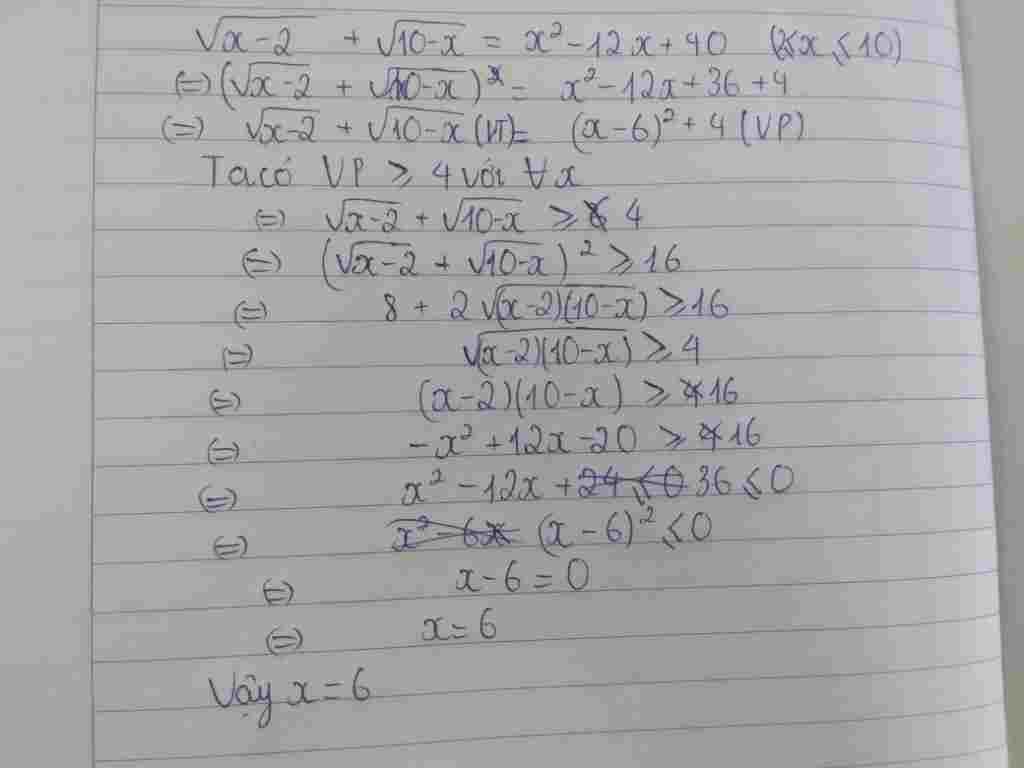 √(x-2) + √(10-x) = x² - 12x + 40 (2≤x≤10)
(=) (√(x-2) + √(10-x)) = x² - 12x + 36 + 4
(=) √(x-2) + √(10-x) (VT) = (x-6)² + 4 (VP)
Ta có VP ≥ 4 với ∀x
(=) √(x-2) + √(10-x) ≥ 4
(=) (√(x-2) + √(10-x))² ≥ 16
(=) 8 + 2√((x-2)(10-x)) ≥ 16
(=) √((x-2)(10-x)) ≥ 4
(=) (x-2)(10-x) ≥ 16
(=) -x² + 12x - 20 ≥ 16
(=) x² - 12x + 36 ≤ 0
(=) (x-6)² ≤ 0
(=) x-6 = 0
(=) x = 6
Vậy x = 6